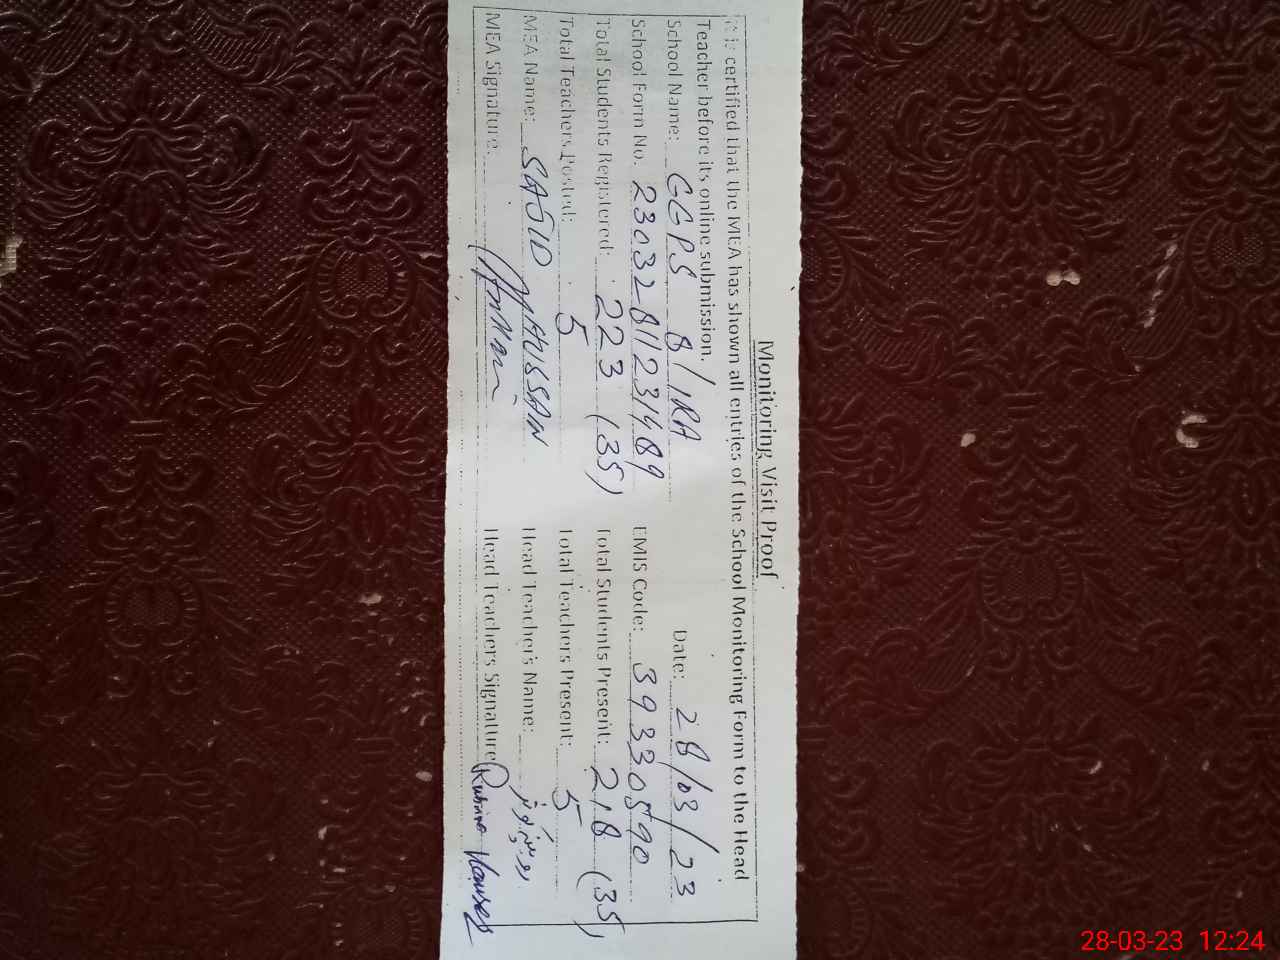 Monitoring Visit Proof
It is certified that the MEA has shown all entries of the School Monitoring Form to the Head
Teacher before its online submission.
School Name: GGPS 8/1RA Date: 28/03/23
School Form No. 23032811231489 EMIS Code: 39330590
Total Students Registered: 223 (35) Total Students Present: 218 (35)
Total Teachers Posted: 5 Total Teachers Present: 5
MEA Name: SAJID HUSSAIN Head Teacher's Name:
MEA Signature: Head Teachers Signature Rubina Kausar
28-03-23 12:24